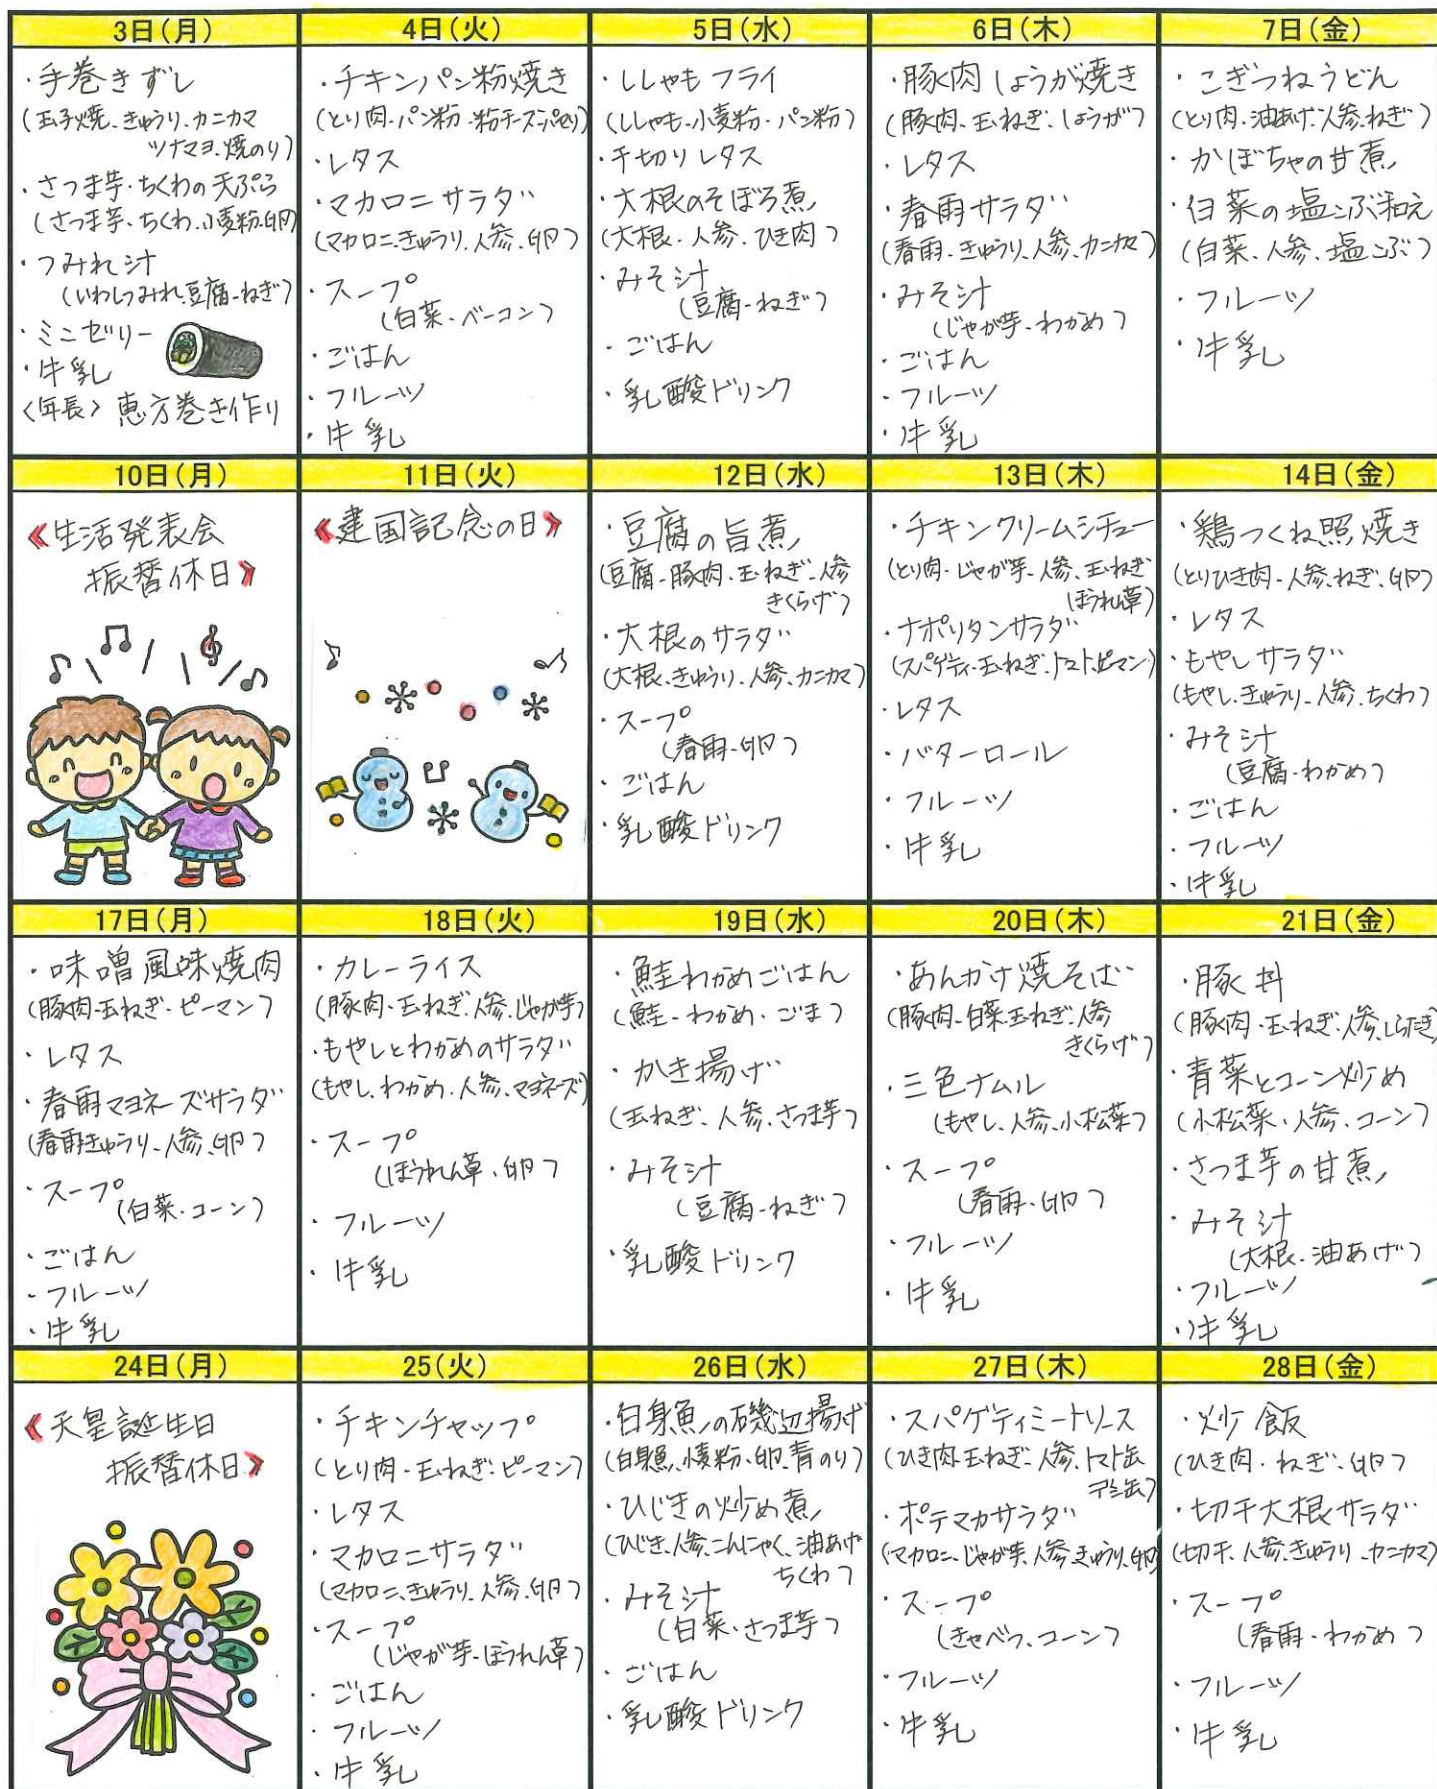 3日(月)
・手巻きずし
(玉子焼、きゅうり、カニカマ
ツナマヨ、焼のり)
・さつま芋・ちくわの天ぷら
(さつま芋、ちくわ、小麦粉、卵)
・つみれ汁
(いわしつみれ、豆腐、ねぎ)
・ミニゼリー
・牛乳
〈年長〉恵方巻き作り
4日(火)
・チキンパン粉焼き
(とり肉・パン粉・粉チーズ・パセリ)
・レタス
・マカロニサラダ
(マカロニ、きゅうり、人参、卵)
・スープ
(白菜・ベーコン)
・ごはん
・フルーツ
・牛乳
5日(水)
・ししゃもフライ
(ししゃも・小麦粉・パン粉)
・千切りレタス
・大根のそぼろ煮
(大根・人参・ひき肉)
・みそ汁
(豆腐・ねぎ)
・ごはん
・乳酸ドリンク
6日(木)
・豚肉しょうが焼き
(豚肉・玉ねぎ・しょうが)
・レタス
・春雨サラダ
(春雨、きゅうり、人参、カニカマ)
・みそ汁
(じゃが芋・わかめ)
・ごはん
・フルーツ
・牛乳
7日(金)
・こぎつねうどん
(とり肉・油あげ・人参・ねぎ)
・かぼちゃの甘煮
・白菜の塩こぶ和え
(白菜、人参、塩こぶ)
・フルーツ
・牛乳
10日(月)
《生活発表会
振替休日》
11日(火)
《建国記念の日》
12日(水)
・豆腐の旨煮
(豆腐・豚肉・玉ねぎ・人参
きくらげ)
・大根のサラダ
(大根、きゅうり、人参、カニカマ)
・スープ
(春雨・卵)
・ごはん
・乳酸ドリンク
13日(木)
・チキンクリームシチュー
(とり肉・じゃが芋・人参、玉ねぎ
ほうれん草)
・ナポリタンサラダ
(スパゲティ・玉ねぎ・トマト・ピーマン)
・レタス
・バターロール
・フルーツ
・牛乳
14日(金)
・鶏つくね照焼き
(とりひき肉・人参、ねぎ、卵)
・レタス
・もやしサラダ
(もやし、きゅうり、人参、ちくわ)
・みそ汁
(豆腐・わかめ)
・ごはん
・フルーツ
・牛乳
17日(月)
・味噌風味焼肉
(豚肉・玉ねぎ・ピーマン)
・レタス
・春雨マヨネーズサラダ
(春雨・きゅうり、人参、卵)
・スープ
(白菜・コーン)
・ごはん
・フルーツ
・牛乳
18日(火)
・カレーライス
(豚肉・玉ねぎ、人参、じゃが芋)
・もやしとわかめのサラダ
(もやし、わかめ、人参、マヨネーズ)
・スープ
(ほうれん草、卵)
・フルーツ
・牛乳
19日(水)
・鮭わかめごはん
(鮭・わかめ・ごま)
・かき揚げ
(玉ねぎ、人参、さつま芋)
・みそ汁
(豆腐・ねぎ)
・乳酸ドリンク
20日(木)
・あんかけ焼そば
(豚肉・白菜・玉ねぎ・人参
きくらげ)
・三色ナムル
(もやし、人参、小松菜)
・スープ
(春雨・卵)
・フルーツ
・牛乳
21日(金)
・豚丼
(豚肉・玉ねぎ・人参・しらたき)
・青菜とコーン炒め
(小松菜・人参・コーン)
・さつま芋の甘煮
・みそ汁
(大根・油あげ)
・フルーツ
・牛乳
24日(月)
《天皇誕生日
振替休日》
25(火)
・チキンチャップ
(とり肉・玉ねぎ・ピーマン)
・レタス
・マカロニサラダ
(マカロニ、きゅうり、人参、卵)
・スープ
(じゃが芋・ほうれん草)
・ごはん
・フルーツ
・牛乳
26日(水)
・白身魚の磯辺揚げ
(白身魚、小麦粉、卵、青のり)
・ひじきの炒め煮
(ひじき、人参、こんにゃく、油あげ
ちくわ)
・みそ汁
(白菜・さつま芋)
・ごはん
・乳酸ドリンク
27日(木)
・スパゲティミートソース
(ひき肉・玉ねぎ・人参、トマト缶
デミ缶)
・ポテマカサラダ
(マカロニ、じゃが芋、人参、きゅうり、卵)
・スープ
(きゃべつ、コーン)
・フルーツ
・牛乳
28日(金)
・炒飯
(ひき肉・ねぎ・卵)
・切干大根サラダ
(切干、人参、きゅうり、カニカマ)
・スープ
(春雨・わかめ)
・フルーツ
・牛乳